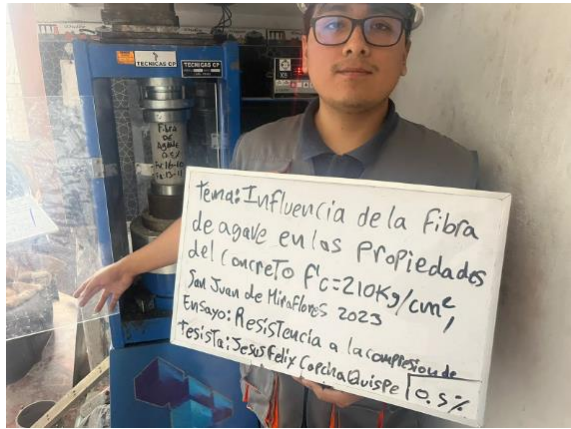 TECNICAS CP
TECNICAS CP
Fibra
de
Agave
0.5%
Tema: Influencia de la Fibra
de agave en las Propiedades
del Concreto f'c=210Kg/cm²,
San Juan de Miraflores 2023
Ensayo: Resistencia a la compresion de
Tesista: Jesus Felix Capcha Quispe 0.5%